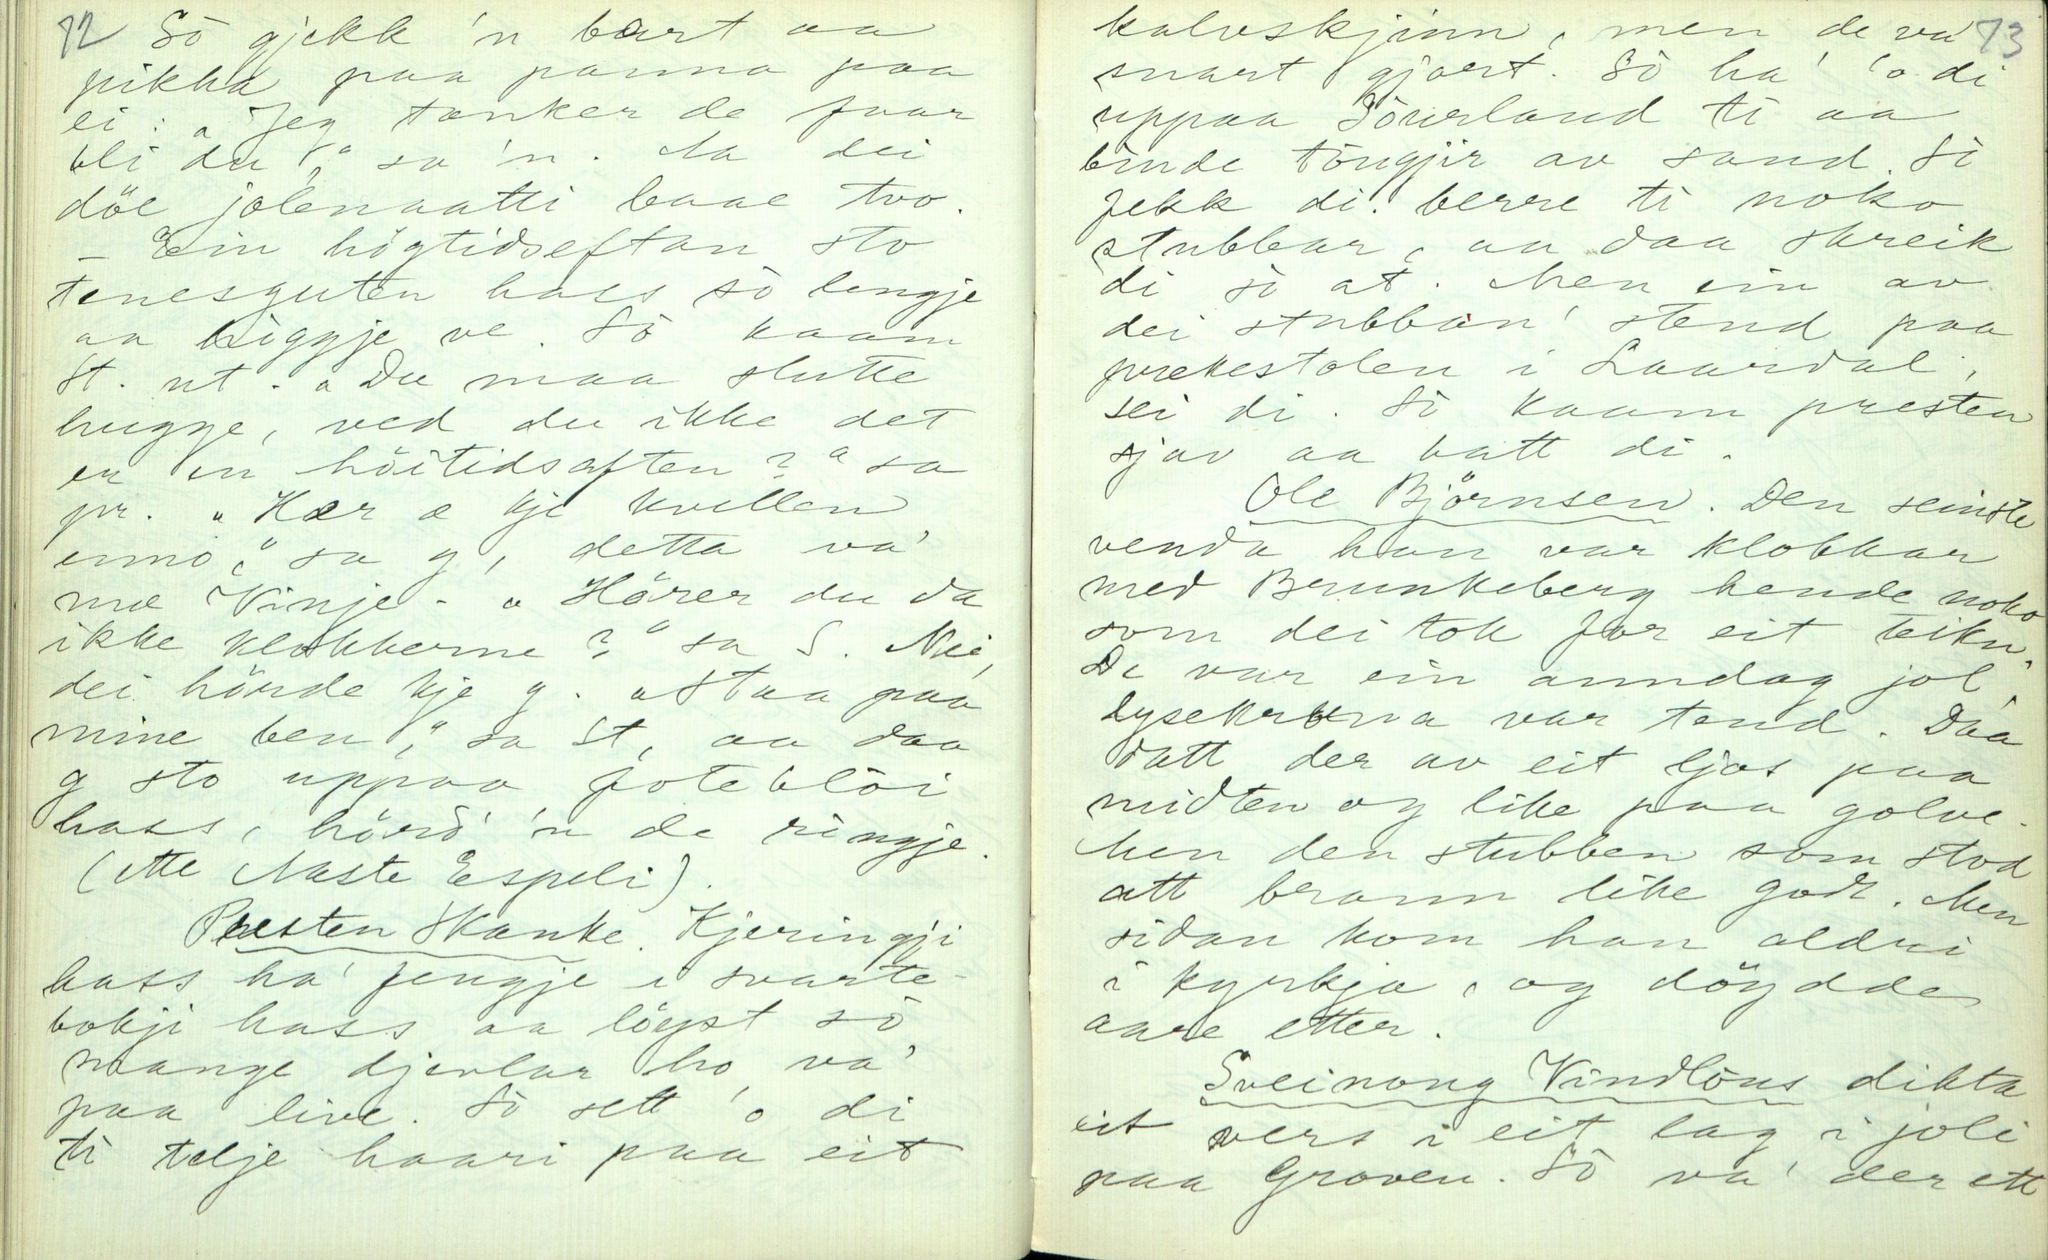 72
Sò gjekk 'n bort aa
pikka paa panna paa
ei: „Jeg tænker de faar
bli du," sa 'n. Aa dei
döe jolenaatti baae tvo.
– Ein högtidseftan sto
tenesguten hass sò lengje
aa higgje ve. Sò kaam
St. ut. „Du maa slutte
hugge, ved du ikke det
er en höitidsaften?" sa
pr. „Her æ kje kvellen
ennò," sa g, detta va'
mæ Vinje. „Hörer du da
ikke klokkerne?" sa S. Nei,
dei hörde kje g. „Staa paa
mine ben," sa St, aa daa
g sto uppaa foteblöi
hass, hörd' 'n de ringje.
(ette Naste Espeli).
Presten Skanke. Kjeringji
hass ha' fengje i svarte-
bokji hass aa löyst sò
mange djevlar ho va'
paa live. Sò sett 'o di
ti telje haari paa eit
73
kalvskjinn, men de va'
snart gjort. Sò ha' 'o di
uppaa Sörland ti aa
binde töngjir av sand. Sò
fekk di berre ti noko
stubbar, aa daa skreik
di sò at. Men ein av
dei stubban' stend paa
prekestolen i Laardal,
sei di. Sò kaam presten
sjav aa batt di.
Ole Björnsen. Den seinste
venda han var klokkar
med Brunkeberg hende noko
som dei tok for eit teikn.
De var ein anndag jol,
Lysekruna var tend. Daa
datt der av eit ljos paa
midten og like paa golve.
Men den stubben som stod
att brann like godt. Men
sidan kom han aldri
i kyrkja, og döydde
aare etter.
Sveinong Vindlöus dikta
eit vers i eit lag i joli
paa Groven. Sò va' der ett